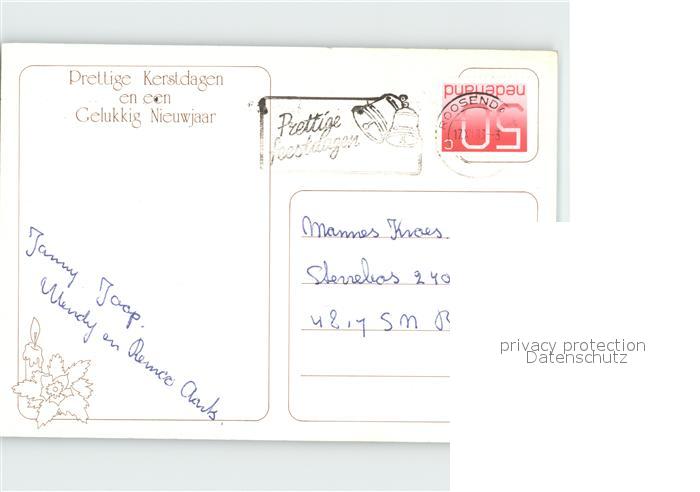 Prettige Kerstdagen
en een
Gelukkig Nieuwjaar
Prettige
feestdagen
ROOSENDA
nederland
50 c
Janny Jaap.
Wendy en Remco Aarts.
Mannes Kroes
Sterrebos 240
4817 SN B
privacy protection
Datenschutz